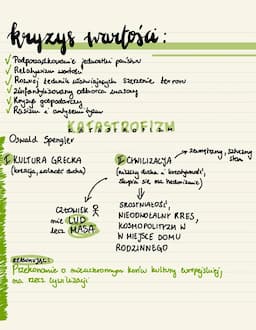 kryzys wartości:
✓ Podporządkowanie jednostki państwu
✓ Relatywizm wartości
✓ Rozwój technik umożliwiających szerzenie terroru
✓ Zinfantylizowany odbiorca masowy
✓ Kryzys gospodarczy
✓ Rasizm i antysemityzm
KATASTROFIZM
KATASTROFIZM
Oswald Spengler
1. KULTURA GRECKA
(kreacja, wolność ducha)
2. CYWILIZACJA
(niszczy ducha i kreatywność,
skupia się na hedonizmie)
→ zewnętrzny, sztuczny
stan
CZŁOWIEK
nie LUD
lecz MASA
SKOSTNIAŁOŚĆ,
NIEODWOŁALNY KRES,
KOSMOPOLITYZM W
W MIEJSCE DOMU
RODZINNEGO
REASUMUJĄC:
Przekonanie o nieuchronnym końcu kultury europejskiej,
na rzecz cywilizacji